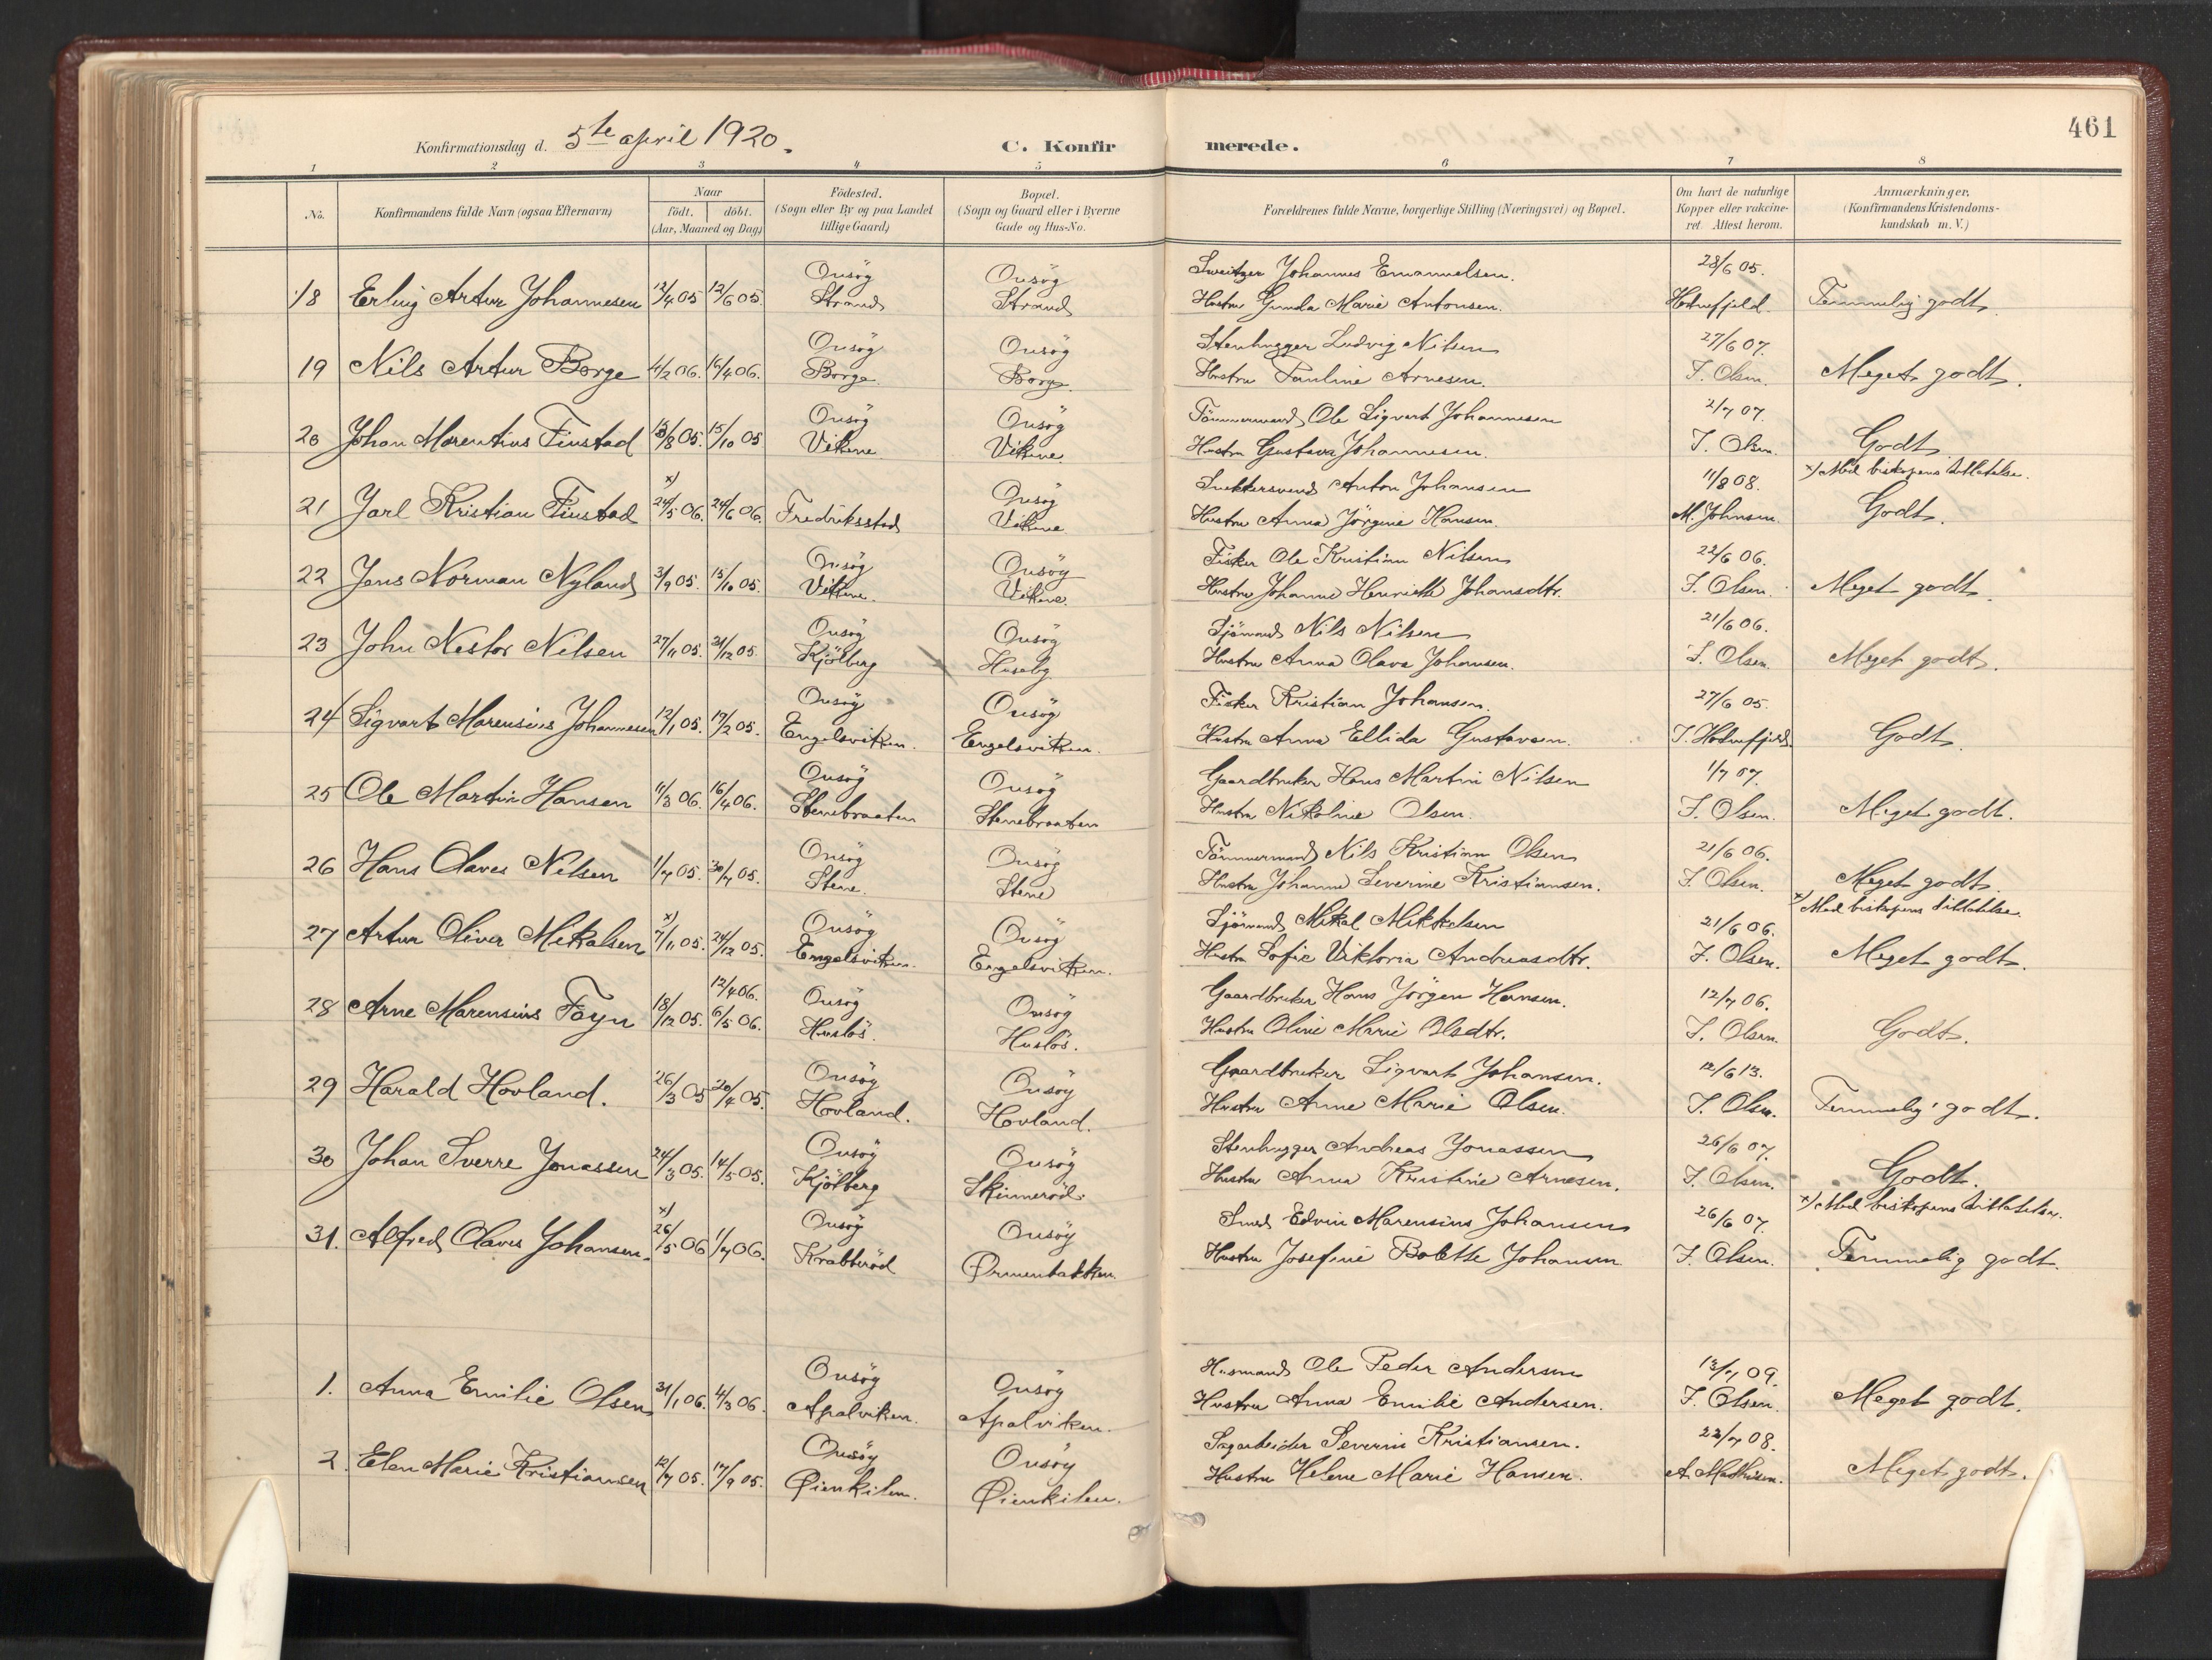 461
Konfirmationsdag d. 5te april 1920.
C. Konfirmerede.
1 2 3 4 5 6 7 8
No.
Konfirmandens fulde Navn (ogsaa Efternavn)
Naar
födt. döbt.
(Aar, Maaned og Dag)
Födested.
(Sogn eller By og paa Landet
tillige Gaard)
Bopæl.
(Sogn og Gaard eller i Byerne
Gade og Hus-No.
Forældrenes fulde Navne, borgerlige Stilling (Næringsvei) og Bopæl.
Om havt de naturlige
Kopper eller vakcine-
ret. Attest herom.
Anmærkninger.
(Konfirmandens Kristendoms-
kundskab m. V.)
Onsöy Onsöy Sweitzer Johannes Emanuelsen. 28/6 05.
18 Erling Artur Johannesen 12/4 05 12/6 05. Strand Strand Hustru Gunda Marie Antonsen. Temmelig godt.
Onsöy Onsöy Stenhugger Ludvig Nilsen 27/6 07.
19 Nils Artur Borge 4/2 06. 16/4 06. Borge Borge Hustru Pauline Arnesen. J. Olsen. Meget godt.
Onsöy Onsöy Tömmermand Ole Sigvart Johannesen 2/7 07.
20 Johan Marentius Finstad 13/8 05. 15/10 05 Vikene Vikene Hustru Gustava Johannesen. J. Olsen. Godt
x) Onsöy Snekkersvend Anton Johansen 11/8 08. x) Med biskopens tilladelse.
21 Jarl Kristian Finstad 24/5 06. 24/6 06. Fredriksstad Vikene Hustru Anna Jörgine Hansen. M. Johnsen. Godt.
Onsöy Onsöy Fisker Ole Kristian Nilsen 22/6 06.
22 Jens Norman Nyland 3/9 05. 15/10 05. Vikene. Vikene. Hustru Johanne Henriette Johansdtr. J. Olsen. Meget godt.
Onsöy Onsöy Sjömand Nils Nilsen 21/6 06.
23 John Nestor Nilsen 27/11 05. 31/12 05. Kjölberg Huseby Hustru Anna Olava Johansen. J. Olsen. Meget godt.
Onsöy Onsöy Fisker Kristian Johansen. 27/6 05.
24 Sigvart Marensius Johannesen 12/1 05. 17/2 05. Engelsviken. Engelsviken. Hustru Anna Ellida Gustavsen. Godt.
Onsöy Onsöy Gaardbruker Hans Martin Nilsen 1/7 07.
25 Ole Martin Hansen 11/3 06. 16/4 06. Stenebraaten Stenebraaten Hustru Nikoline Olsen. J. Olsen. Meget godt.
Onsöy Onsöy Tömmermand Nils Kristian Olsen 21/6 06.
26 Hans Olaves Nilsen 1/7 05. 30/7 05. Stene. Stene Hustru Johanne Severine Kristiansen. J. Olsen. Meget godt.
x) Onsöy Onsöy Sjömand Mikal Mikkelsen 21/6 06. x) Med biskopens tilladelse.
27 Artur Oliver Mikalsen 7/11 05. 24/12 05. Engelsviken. Engelsviken. Hustru Sofie Viktoria Andreasdtr. J. Olsen. Meget godt.
12/4 06. Onsöy Onsöy Gaardbruker Hans Jörgen Hansen. 12/7 06.
28 Arne Marensius Föyn 18/12 05. 6/5 06. Huslös. Huslös. Hustru Oline Marie Olsdtr. J. Olsen. Godt.
Onsöy Onsöy Gaardbruker Sigvart Johansen. 12/6 13.
29 Harald Hovland. 26/3 05 20/4 05. Hovland. Hovland. Hustru Anne Marie Olsen. J. Olsen. Temmelig godt.
Onsöy Onsöy Stenhugger Andreas Jonassen 26/6 07.
30 Johan Sverre Jonassen 24/3 05. 14/5 05. Kjölberg Skinneröd. Hustru Anna Kristine Arnesen. J. Olsen. Godt.
x) Onsöy Onsöy Smed Edvin Marensius Johansen 26/6 07. x) Med biskopens tilladelse.
31. Alfred Olaves Johansen. 26/5 06 1/7 06. Krabberöd Ørmenbakken. Hustru Josefine Bolette Johansen J. Olsen. Temmelig godt.
Onsöy Onsöy Husmand Ole Peder Andersen 13/7 09.
1. Anna Emilie Olsen 31/1 06. 4/3 06. Apalviken. Apalviken. Hustru Anna Emilie Andersen. J. Olsen. Meget godt.
Onsöy Onsöy Sagarbeider Severin Kristiansen. 22/7 08.
2. Elen Marie Kristiansen 12/7 05. 17/9 05. Øienkilen. Øienkilen. Hustru Helene Marie Hansen. A. Mathisen. Meget godt.